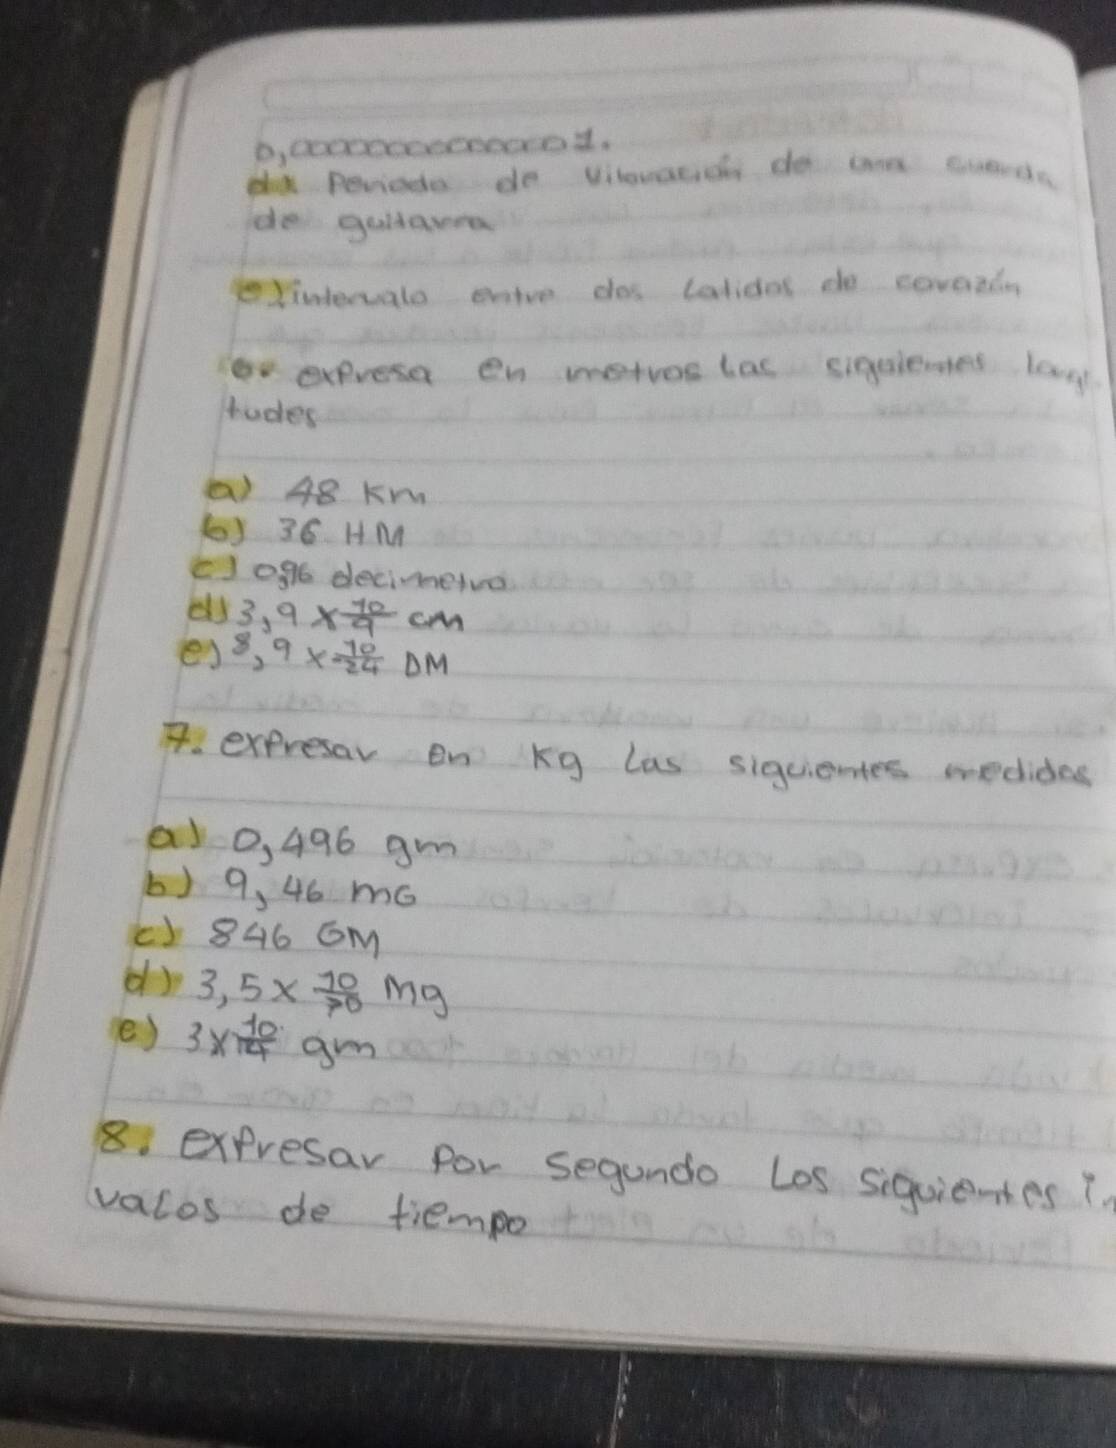 0,00000000000000001.
d) Periodo de Vibración de una cuerda
de guitarra
e) intervalo entre dos latidos de corazón
6. expresa en metros las siguientes longi
tudes
a) 48 Km
b) 36 HM
c) 0,96 decimetro
d) 3,9 x 10/9 cm
e) 8,9 x 10/-24 DM
7. expresar en Kg las siguientes medidas
a) 0,496 gm
b) 9,46 mG
c) 846 GM
d) 3,5 x Mg
e) 3 x gm
8. expresar por segundo Los siguientes in
valos de tiempo